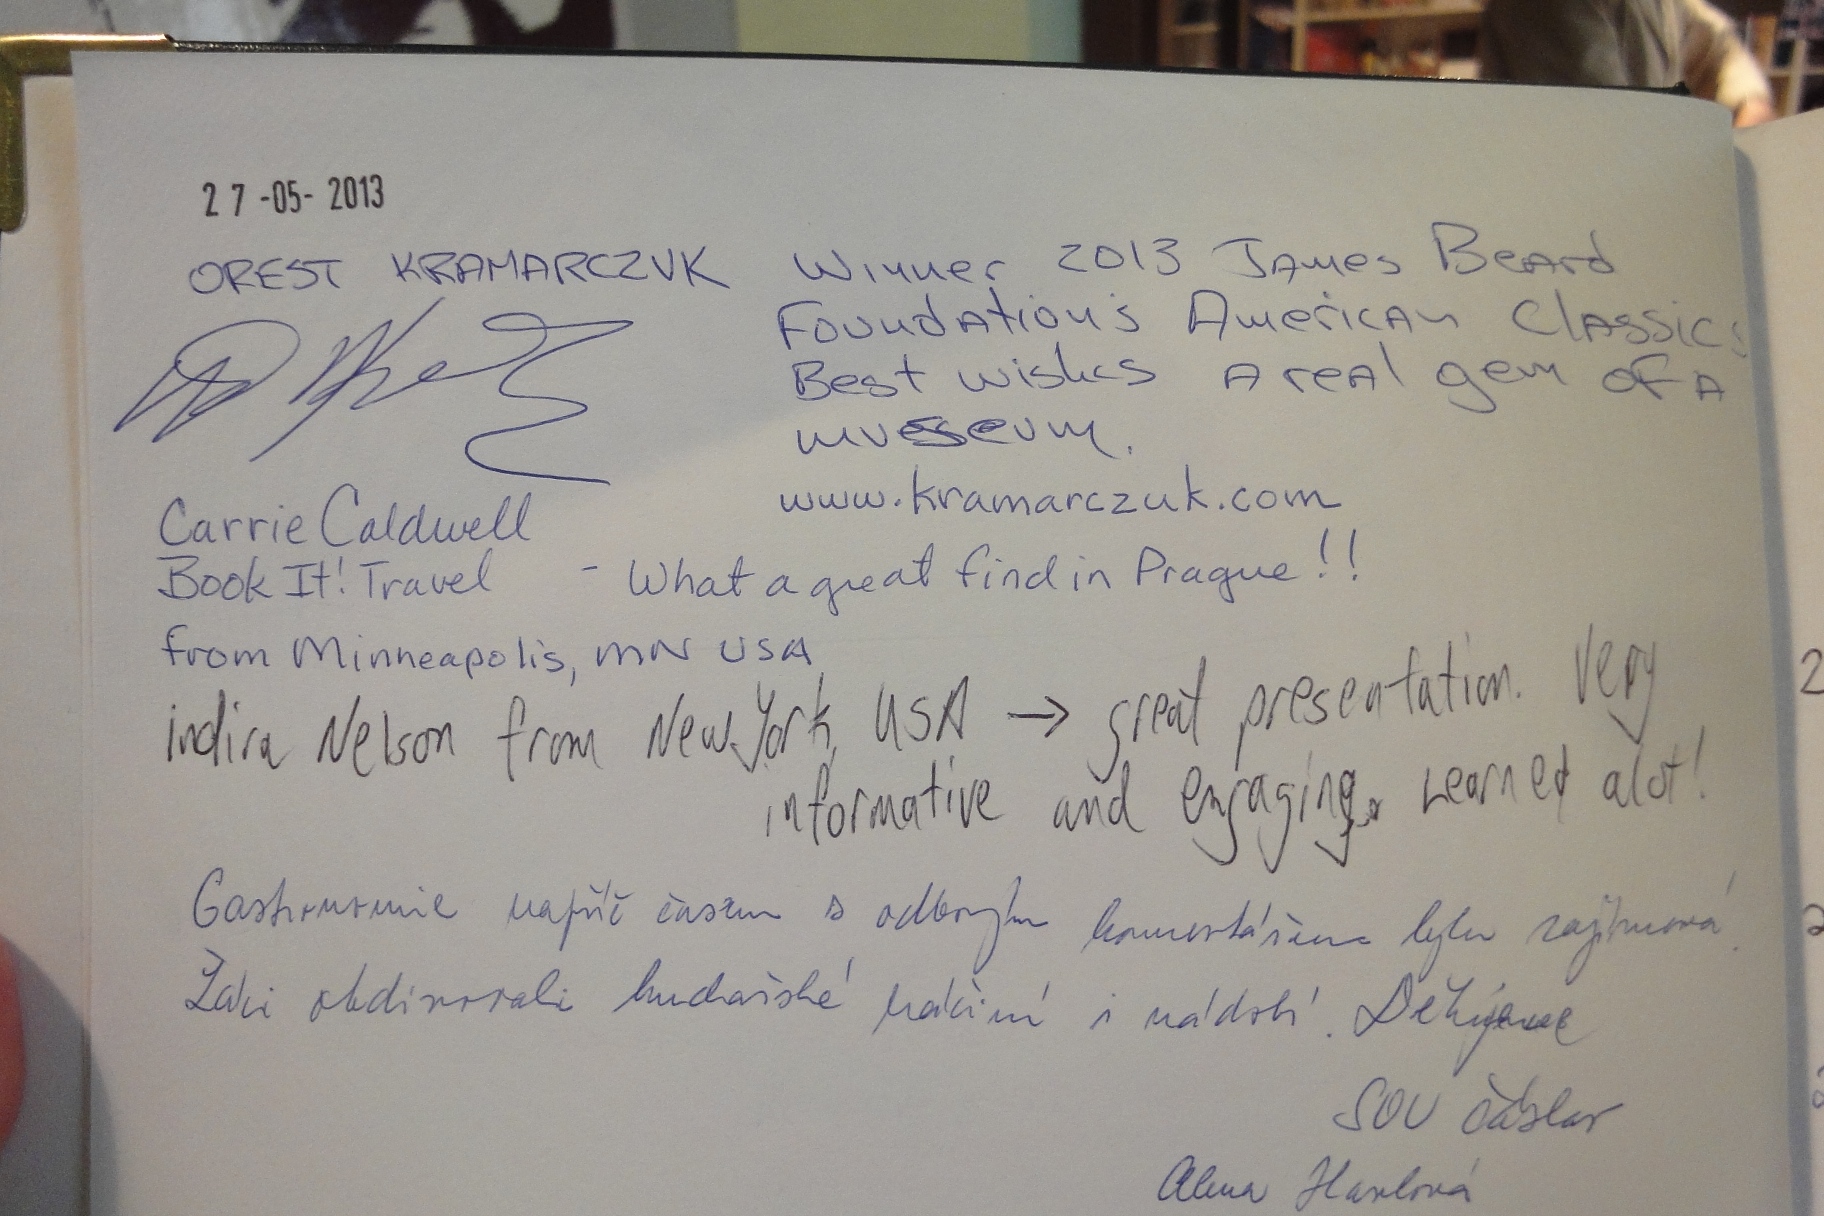 27-05-2013
OREST KRAMARCZUK Winner 2013 James Beard
Foundation's American Classics
Best wishes A real gem of a
museum.
www.kramarczuk.com
Carrie Caldwell
Book It! Travel - What a great find in Prague!!
from Minneapolis, MN USA
indira Nelson from New York, USA → great presentation. Very
informative and engaging. Learned alot!
Gastronomie napříč časem s odborným komentářem byla zajímavá.
Žáci obdivovali kuchařské náčiní i nádobí. Děkujeme
SOU Čáslav
Alena Havlová
2
2